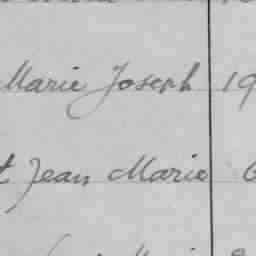 Marie Joseph 19
t Jean Marie 6